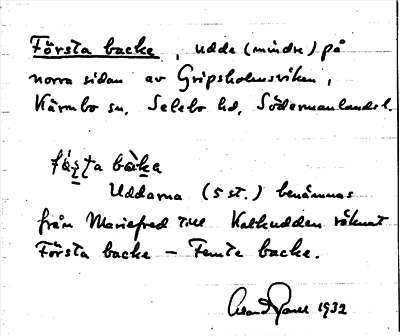 Första backe, udde (mindre) på
norra sidan av Gripsholmsviken,
Kärnbo sn, Selebo hd, Södermanlands l.
bàke
Uddarna (5 st.) benämnas
från Mariefred till Kalkudden räknat
Första backe – Femte backe.
1932